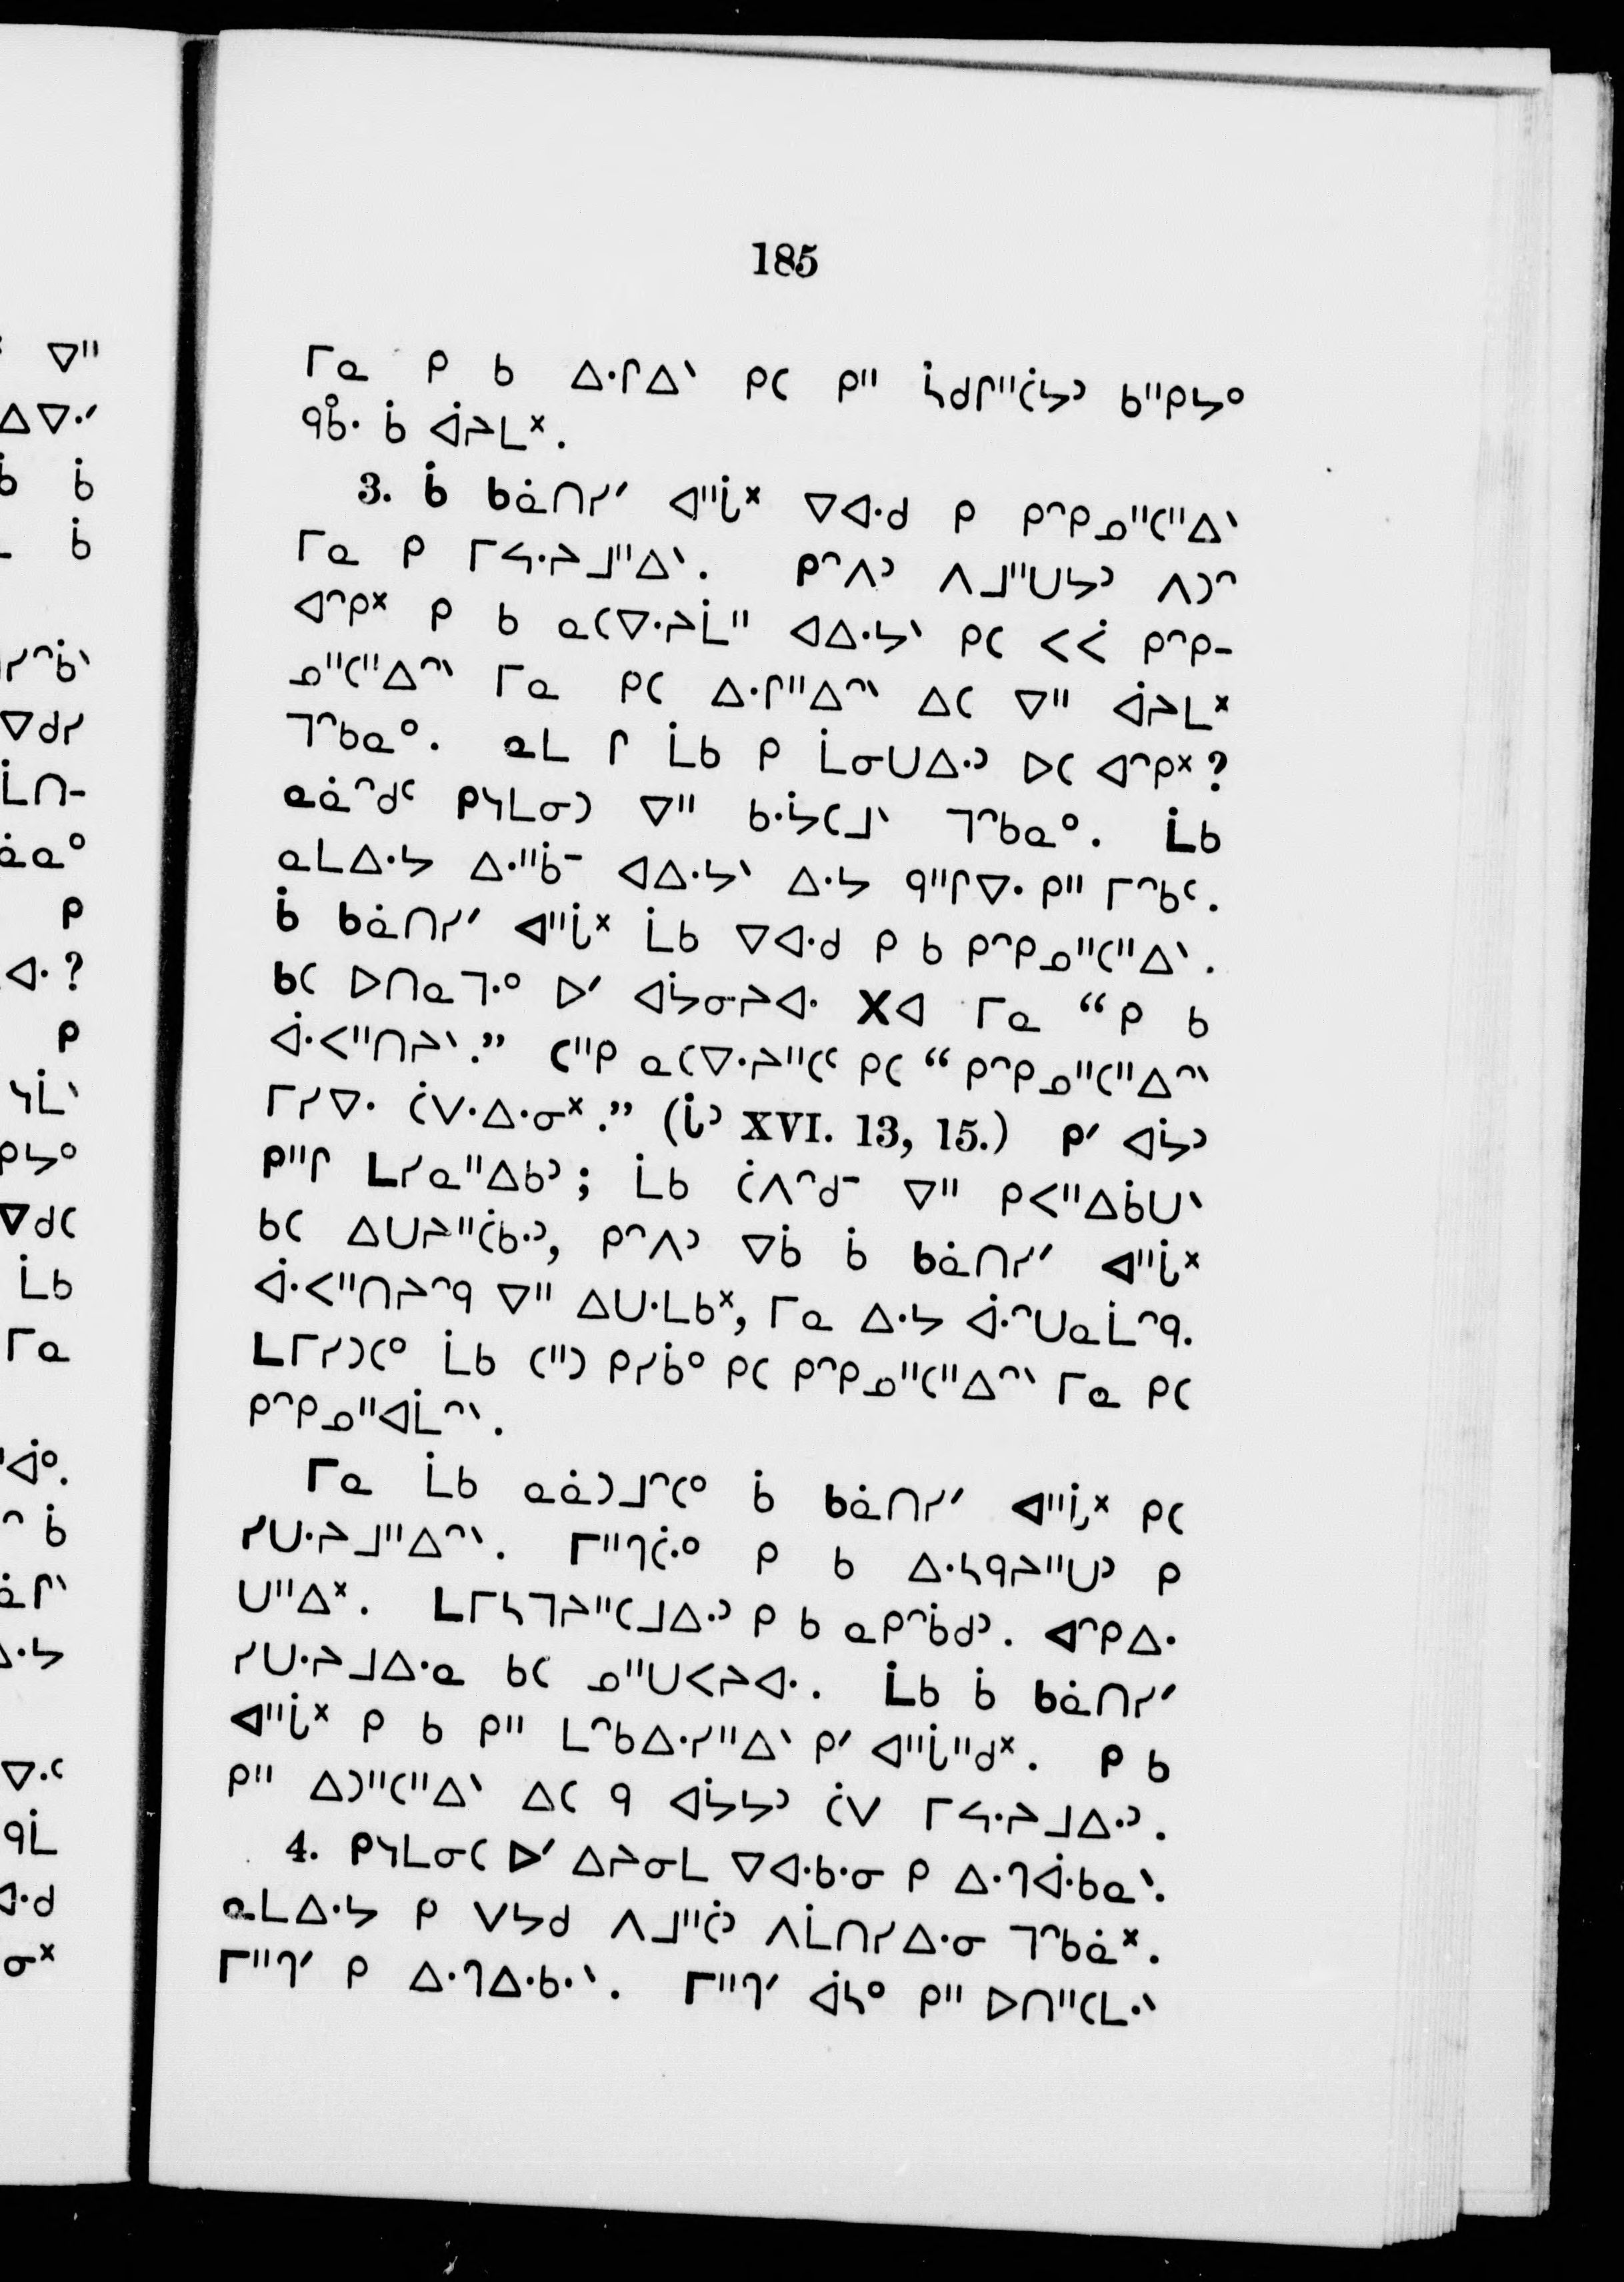 185
ᒥᓇ ᑭ ᑲ ᐃᐧᒋᐃᐠ ᑭᑕ ᑭᐦ ᓵᑯᒋᐦᑖᔭᐣ ᑲᐦᑭᔭᐤ
ᑫᑿᐧ ᑳ ᐋᔨᒪᕽ.
3. ᑳ ᑲᓈᑎᓯᐟ ᐊᐦᒑᕽ ᐁᐊᐧᑯ ᑭ ᑭᐢᑭᓄᐦᑕᐦᐃᐠ
ᒥᓇ ᑭ ᒥᔭᐧᔨᒧᐦᐃᐠ. ᑭᐢᐱᐣ ᐱᒧᐦᑌᔭᐣ ᐱᑐᐢ
ᐊᐢᑭᕽ ᑭ ᑲ ᓇᑕᐁᐧᔨᒫᐦ ᐊᐃᐧᔭᐠ ᑭᑕ ᐸᐹ ᑭᐢᑭ-
ᓄᐦᑕᐦᐃᐢᐠ ᒥᓇ ᑭᑕ ᐃᐧᒋᐦᐃᐢᐠ ᐃᑕ ᐁᐦ ᐋᔨᒪᕽ
ᒣᐢᑲᓇᐤ. ᓇᒪ ᒋ ᒫᑲ ᑭ ᒫᓂᑌᐃᐧᐣ ᐅᑕ ᐊᐢᑭᕽ?
ᓇᓈᐢᑯᒼ ᑭᓴᒪᓂᑐ ᐁᐦ ᑲᐧᔮᑕᒧᐠ ᒣᐢᑲᓇᐤ. ᒫᑲ
ᓇᒪᐃᐧᔭ ᐃᐧᐦᑳᐨ ᐊᐃᐧᔭᐠ ᐃᐧᔭ ᑫᐦᒋᐁᐧ ᑭᐦ ᒥᐢᑲᒼ.
ᑳ ᑲᓈᑎᓯᐟ ᐊᐦᒑᕽ ᒫᑲ ᐁᐊᐧᑯ ᑭ ᑲ ᑭᐢᑭᓄᐦᑕᐦᐃᐠ.
ᑲᑕ ᐅᑎᓇᒣᐧᐤ ᐅᐟ ᐊᔮᓂᔨᐊᐧ Xᐊ ᒥᓇ “ᑭ ᑲ
ᐚᐸᐦᑎᔨᐠ.” ᑕᐦᑭ ᓇᑕᐁᐧᔨᐦᑕᒼ ᑭᑕ “ᑭᐢᑭᓄᐦᑕᐦᐃᐢᐠ
ᒥᓯᐁᐧ ᑖᐯᐧᐃᐧᓂᕽ.” (ᒑᐣ XVI. 13, 15.) ᑭᐟ ᐊᔮᐣ
ᑭᐦᒋ ᒪᓯᓇᐦᐃᑲᐣ; ᒫᑲ ᑖᐱᐢᑯᐨ ᐁᐦ ᑭᐸᐦᐃᑳᑌᐠ
ᑲᑕ ᐃᑌᔨᐦᑖᑲᐧᐣ, ᑭᐢᐱᐣ ᐁᑳ ᑳ ᑲᓈᑎᓯᐟ ᐊᐦᒑᕽ
ᐚᐸᐦᑎᔨᐢᑫ ᐁᐦ ᐃᑌᐧᒪᑲᕽ, ᒥᓇ ᐃᐧᔭ ᐚᐢᑌᓇᒫᐢᑫ.
ᒪᒥᓯᑐᑕᐤ ᒫᑲ ᑕᐦᑐ ᑭᓯᑳᐤ ᑭᑕ ᑭᐢᑭᓄᐦᑕᐦᐃᐢᐠ ᒥᓇ ᑭᑕ
ᑭᐢᑭᓄᐦᐊᒫᐢᐠ.
ᒥᓇ ᒫᑲ ᓇᓈᑐᒧᐢᑕᐤ ᑳ ᑲᓈᑎᓯᐟ ᐊᐦᒑᕽ ᑭᑕ
ᓯᑌᐧᔨᒧᐦᐃᐢᐠ. ᒥᐦᒉᑖᐧᐤ ᑭ ᑲ ᐃᐧᓴᑫᔨᐦᑌᐣ ᑭ
ᑌᐦᐃᕽ. ᒪᒥᓴᒣᔨᐦᑕᒧᐃᐧᐣ ᑭ ᑲ ᓇᑭᐢᑳᑯᐣ. ᐊᐢᑭᐃᐧ
ᓯᑌᐧᔨᒧᐃᐧᓇ ᑲᑕ ᓄᐦᑌᐸᔨᐊᐧ. ᒫᑲ ᑳ ᑲᓈᑎᓯᐟ
ᐊᐦᒑᕽ ᑭ ᑲ ᑭᐦ ᒪᐢᑲᐃᐧᓯᐦᐃᐠ ᑭᐟ ᐊᐦᒑᐦᑯᕽ. ᑭ ᑲ
ᑭᐦ ᐃᑐᐦᑕᐦᐃᐠ ᐃᑕ ᑫ ᐊᔮᔭᐣ ᑖᐯ ᒥᔭᐧᔨᒧᐃᐧᐣ.
4. ᑭᓴᒪᓂᑕ ᐅᐟ ᐃᔨᓂᒪ ᐁᐊᐧᑲᐧᓂ ᑭ ᐃᐧᒉᐚᑲᓇᐠ.
ᓇᒪᐃᐧᔭ ᑭ ᐯᔭᑯ ᐱᒧᐦᑖᐣ ᐱᒫᑎᓯᐃᐧᓂ ᒣᐢᑲᓈᕽ.
ᒥᐦᒉᐟ ᑭ ᐃᐧᒉᐃᐧᑲᐧᐠ. ᒥᐦᒉᐟ ᐋᓴᐤ ᑭᐦ ᐅᑎᐦᑕᒪᐧᐠ